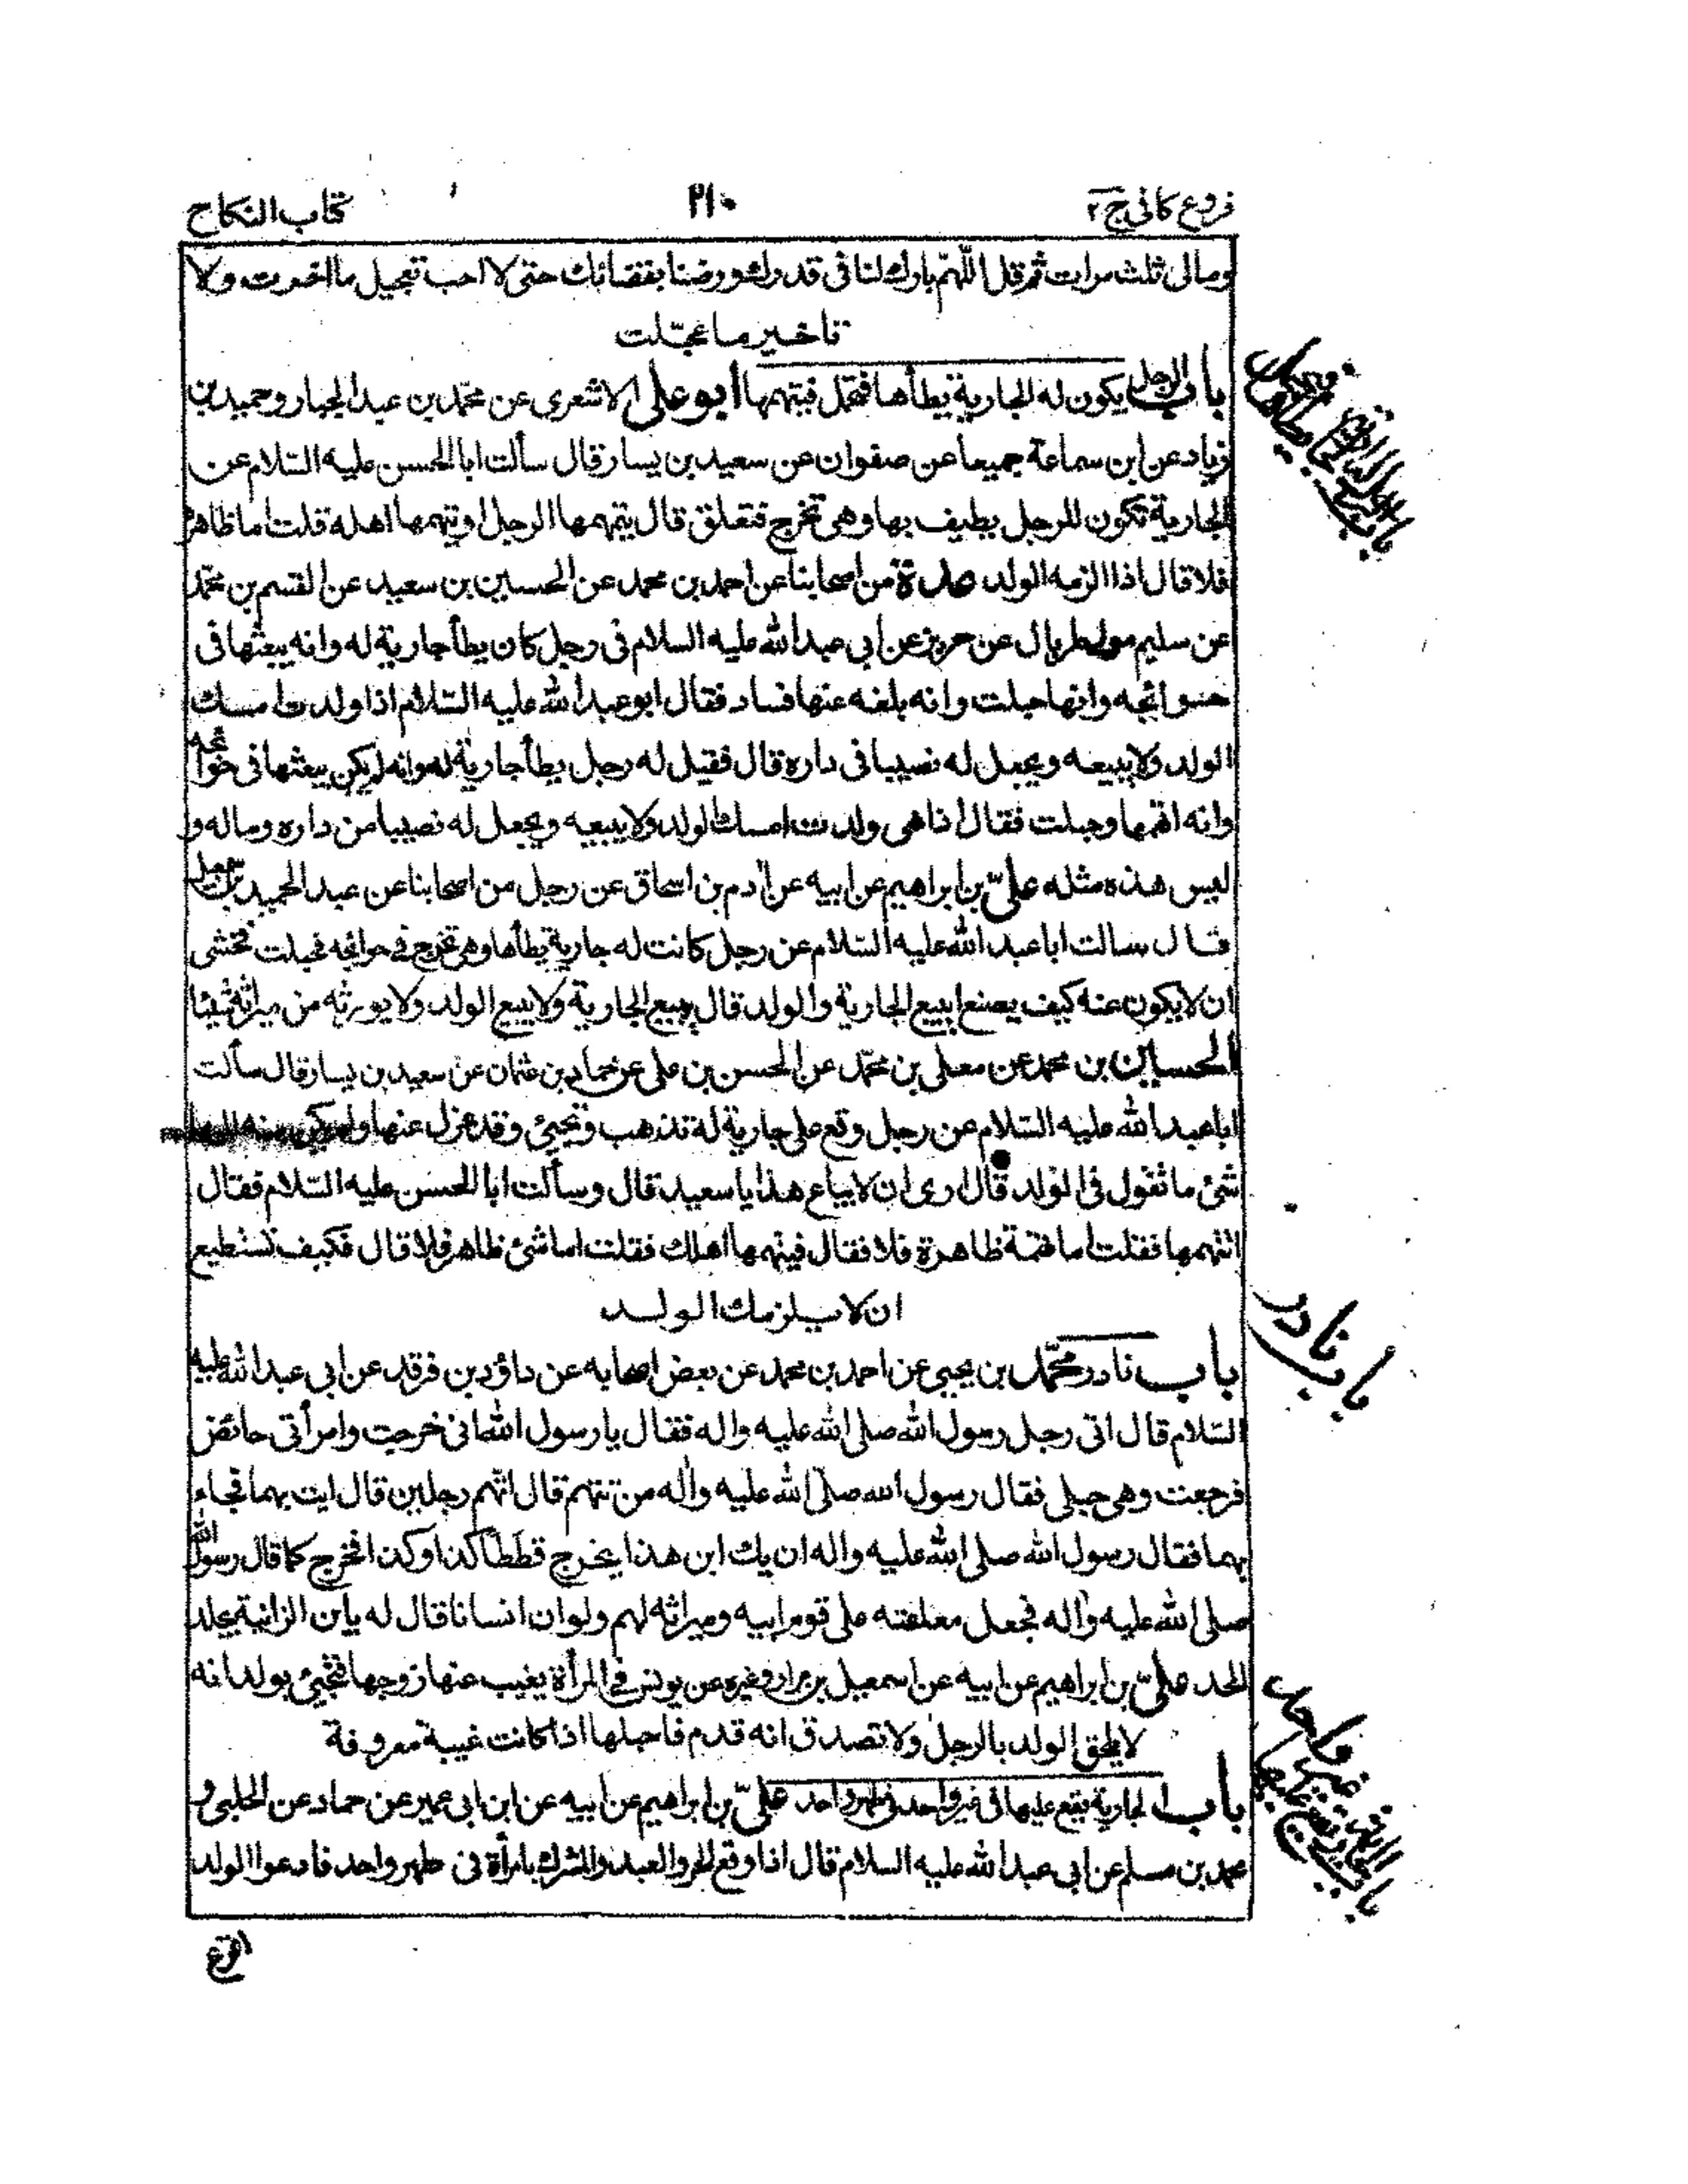 فروع كافى ج ٢
٢١٠
كتاب النكاح
ومالى ثلث مرات ثم قل اللّهمّ بارك لنا فى قدرك ورضنا بقضائك حتى لا احب تعجيل ما اخرت ولا
تاخير ما عجّلت
باب الرجل يكون له الجارية يطأها فتحمل فيتهمها أبو على الاشعرى عن محمّد بن عبد الجبار وحميد بن
زياد عن ابن سماعة جميعا عن صفوان عن سعيد بن يسار قال سألت ابا الحسن عليه السّلام عن
الجارية تكون للرجل يطيف بها وهى تخرج فتعلق قال يتهمها الرجل او يتهمها اهله قلت اما ظاهرة
فلا قال اذا الزمه الولد عدة من اصحابنا عن احمد بن محمد عن الحسين بن سعيد عن القسم بن محمّد
عن سليم مولى طربال عن حريز عن أبى عبد اللّه عليه السلام فى رجل كان يطأ جارية له وانه يبعثها فى
حوائجه وانها حبلت وانه بلغه عنها فساد فقال ابو عبد اللّه عليه السّلام اذا ولدت امسك
الولد ولا يبيعه ويجعل له نصيبا فى داره قال فقيل له رجل يطأ جارية له وانه لم يكن يبعثها فى حوائجه
وانه اتهمها وحبلت فقال اذا هى ولدت امسك الولد ولا يبيعه ويجعل له نصيبا من داره وماله و
ليس هذه مثله علىّ بن ابراهيم عن ابيه عن آدم بن اسحاق عن رجل من اصحابنا عن عبد الحميد بن اسمعيل
قال سالت ابا عبد اللّه عليه السّلام عن رجل كانت له جارية يطأها وهى تخرج فى حوائجه فحبلت فخشى
ان لا يكون عنه كيف يصنع ايبيع الجارية والولد قال يبيع الجارية ولا يبيع الولد ولا يورثه من ميراثه شيئا
الحسين بن محمد عن معلى بن محمّد عن الحسن بن على عن حماد بن عثمان عن سعيد بن يسار قال سألت
ابا عبد اللّه عليه السّلام عن رجل وقع على جارية له تذهب وتجيئ وقد عزل عنها ولم يكن منه اليها
شئ ما تقول فى الولد قال ارى ان لا يباع هذا يا سعيد قال وسألت ابا الحسن عليه السّلام فقال
اتتهمها فقلت اما تهمة ظاهرة فلا فقال فيتهمها اهلك فقلت اما شئ ظاهر فلا قال فكيف تستطيع
ان لا يلزمك الولد
باب نادر محمّد بن يحيى عن احمد بن محمد عن بعض اصحابه عن داؤد بن فرقد عن ابى عبد اللّه عليه
السّلام قال اتى رجل رسول اللّه صلى اللّه عليه واله فقال يا رسول اللّه انى خرجت وامرأتى حائض
فرجعت وهى حبلى فقال رسول اللّه صلّى اللّه عليه وآله من تتهم قال اتّهم رجلين قال ايت بهما فجاء
بهما فقال رسول اللّه صلى اللّه عليه واله ان يك ابن هذا يخرج قططا كذا وكذا فخرج كما قال رسول اللّه
صلى اللّه عليه وآله فجعل معقلته على قوم ابيه وميراثه لهم ولو ان انسانا قال له يا بن الزانية يجلد
الحد علىّ بن ابراهيم عن ابيه عن اسمعيل بن مرار وغيره عن يونس فى المرأة يغيب عنها زوجها فتجيئ بولد انه
لا يلحق الولد بالرجل ولا تصدق انه قدم فاحبلها اذا كانت غيبة معروفة
باب الجارية يقع عليها فى غير واحد فى طهر واحد علىّ بن ابراهيم عن ابيه عن ابن ابى عمير عن حماد عن الحلبى و
محمد بن مسلم عن ابى عبد اللّه عليه السلام قال اذا وقع الحر والعبد والمشرك بامرأة فى طهر واحد فادعوا الولد
اقرع
باب نادر